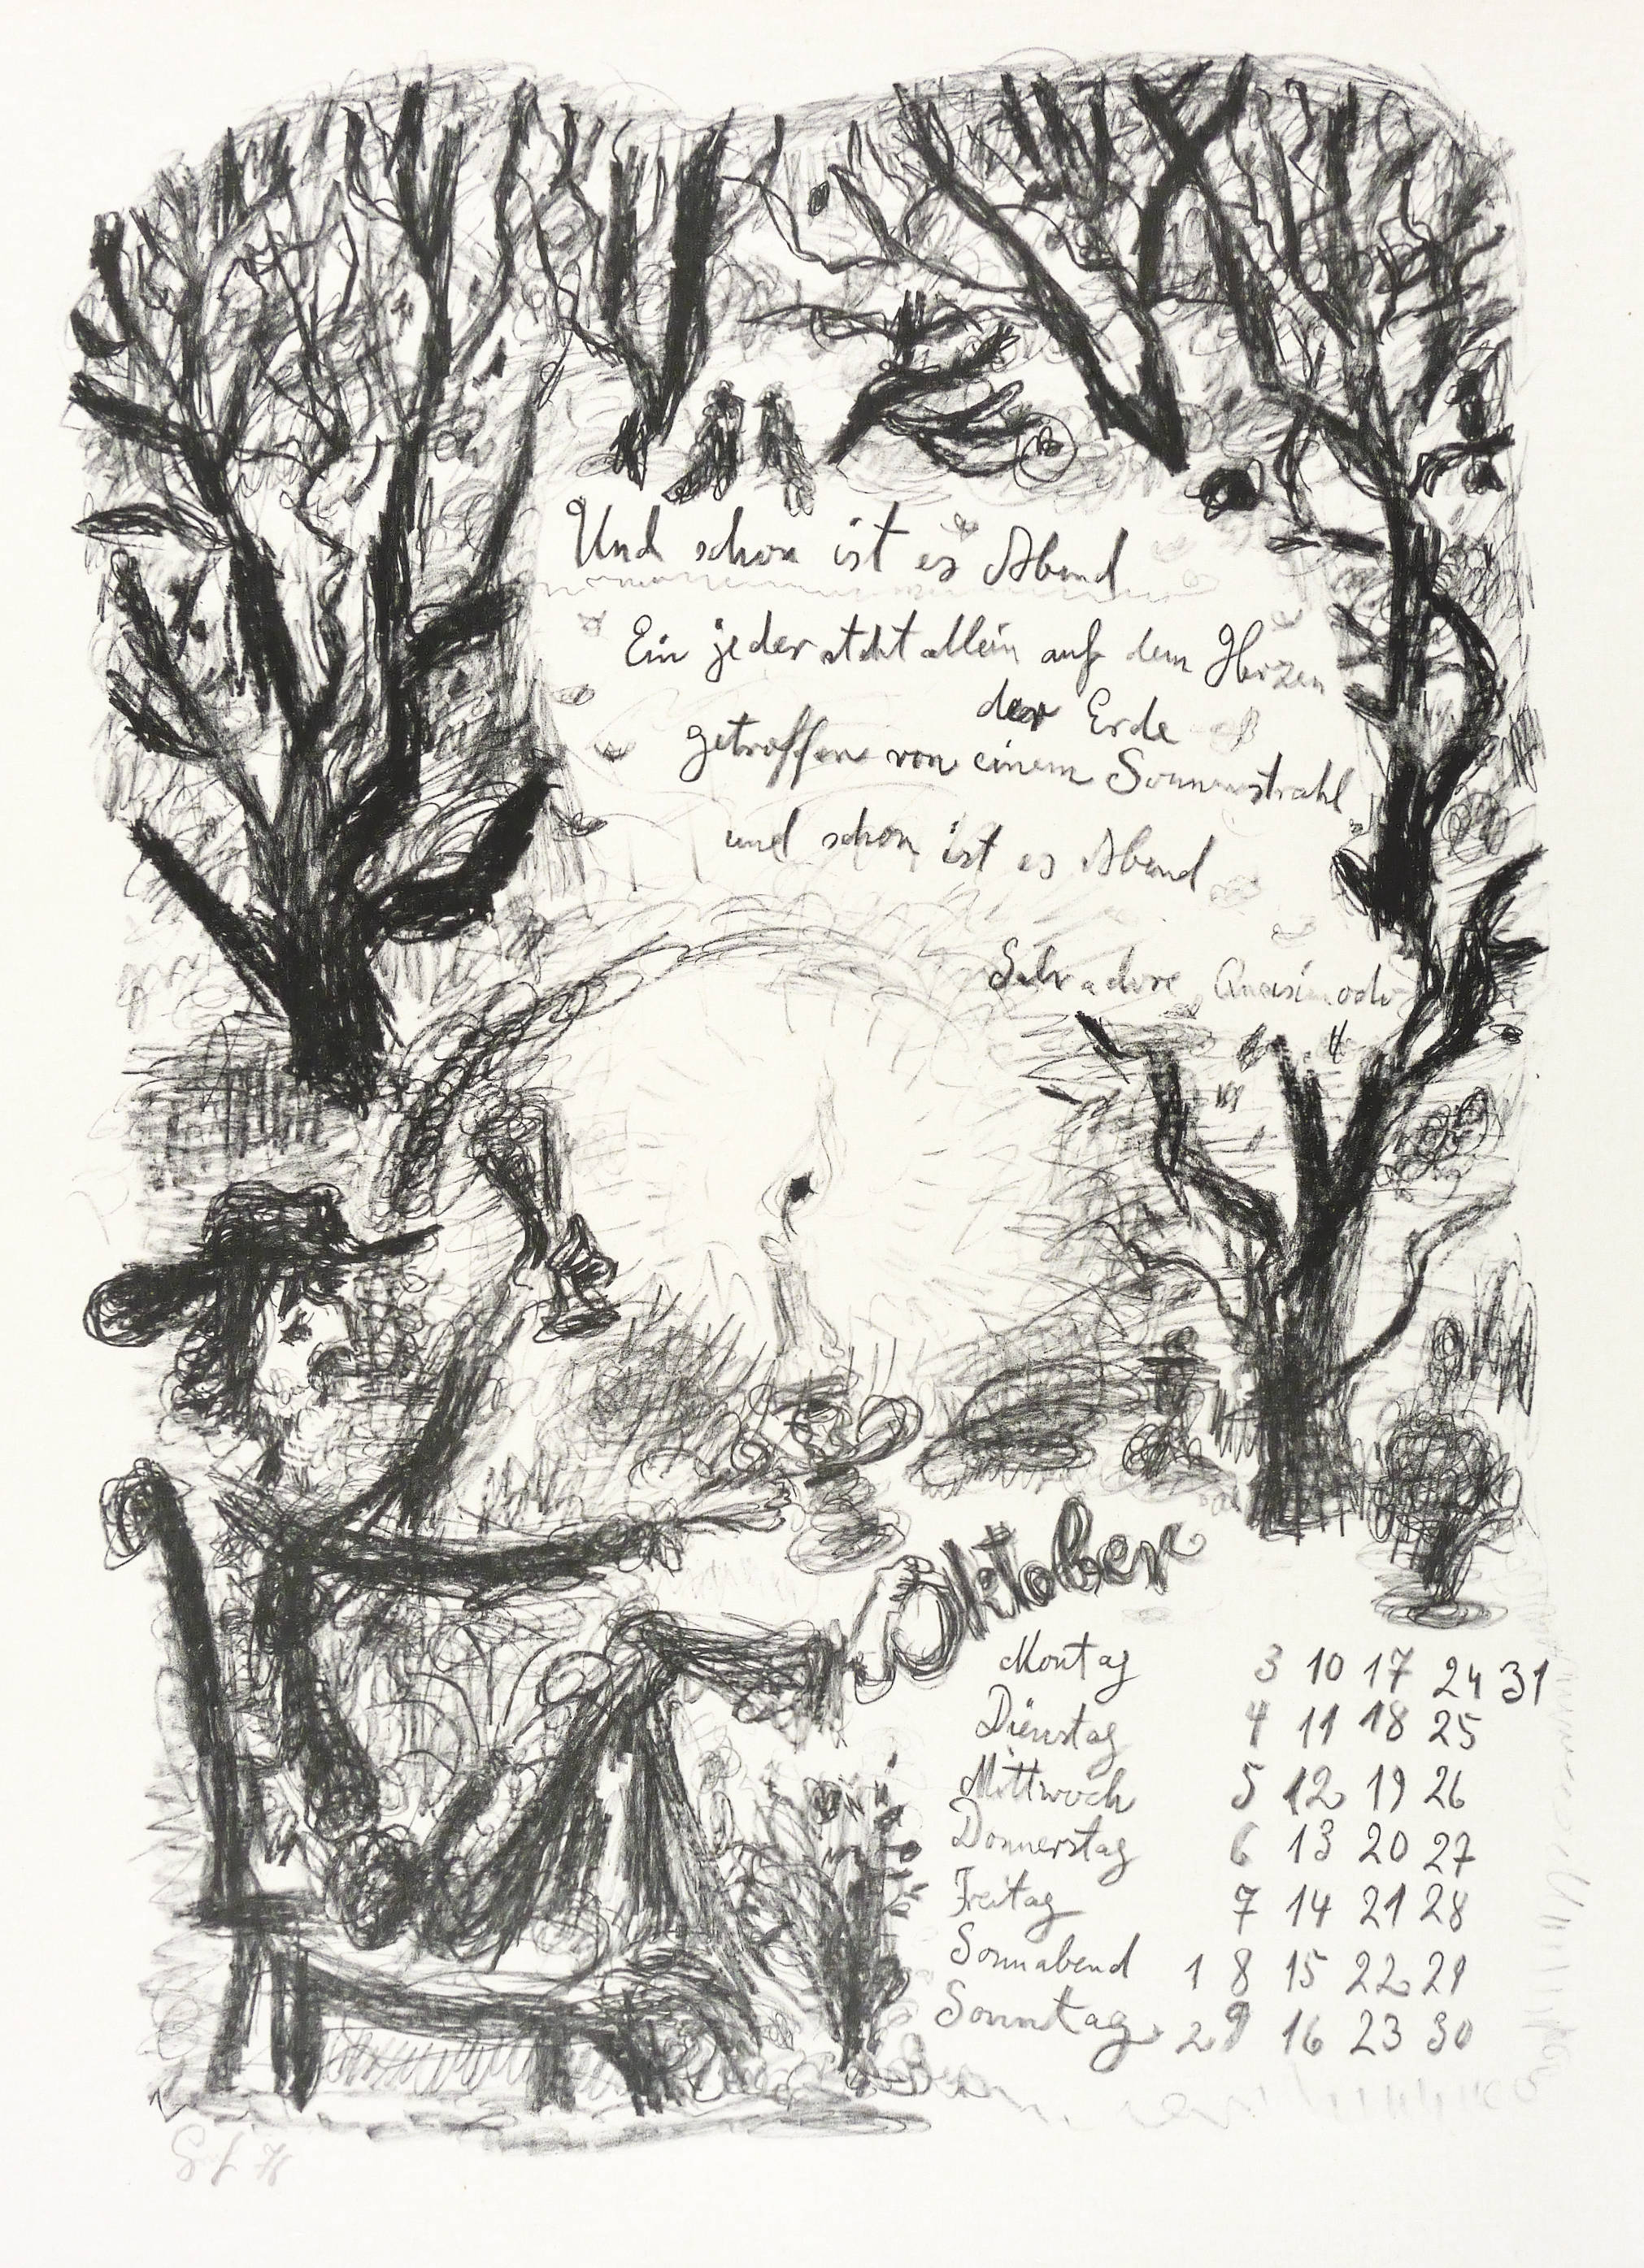 Und schon ist es Abend
Ein jeder steht allein auf dem Herzen
der Erde
getroffen von einem Sonnenstrahl
und schon ist es Abend
Salvadore Quasimodo
Oktober
Montag 3 10 17 24 31
Dienstag 4 11 18 25
Mittwoch 5 12 19 26
Donnerstag 6 13 20 27
Freitag 7 14 21 28
Sonnabend 1 8 15 22 29
Sonntag 2 9 16 23 30